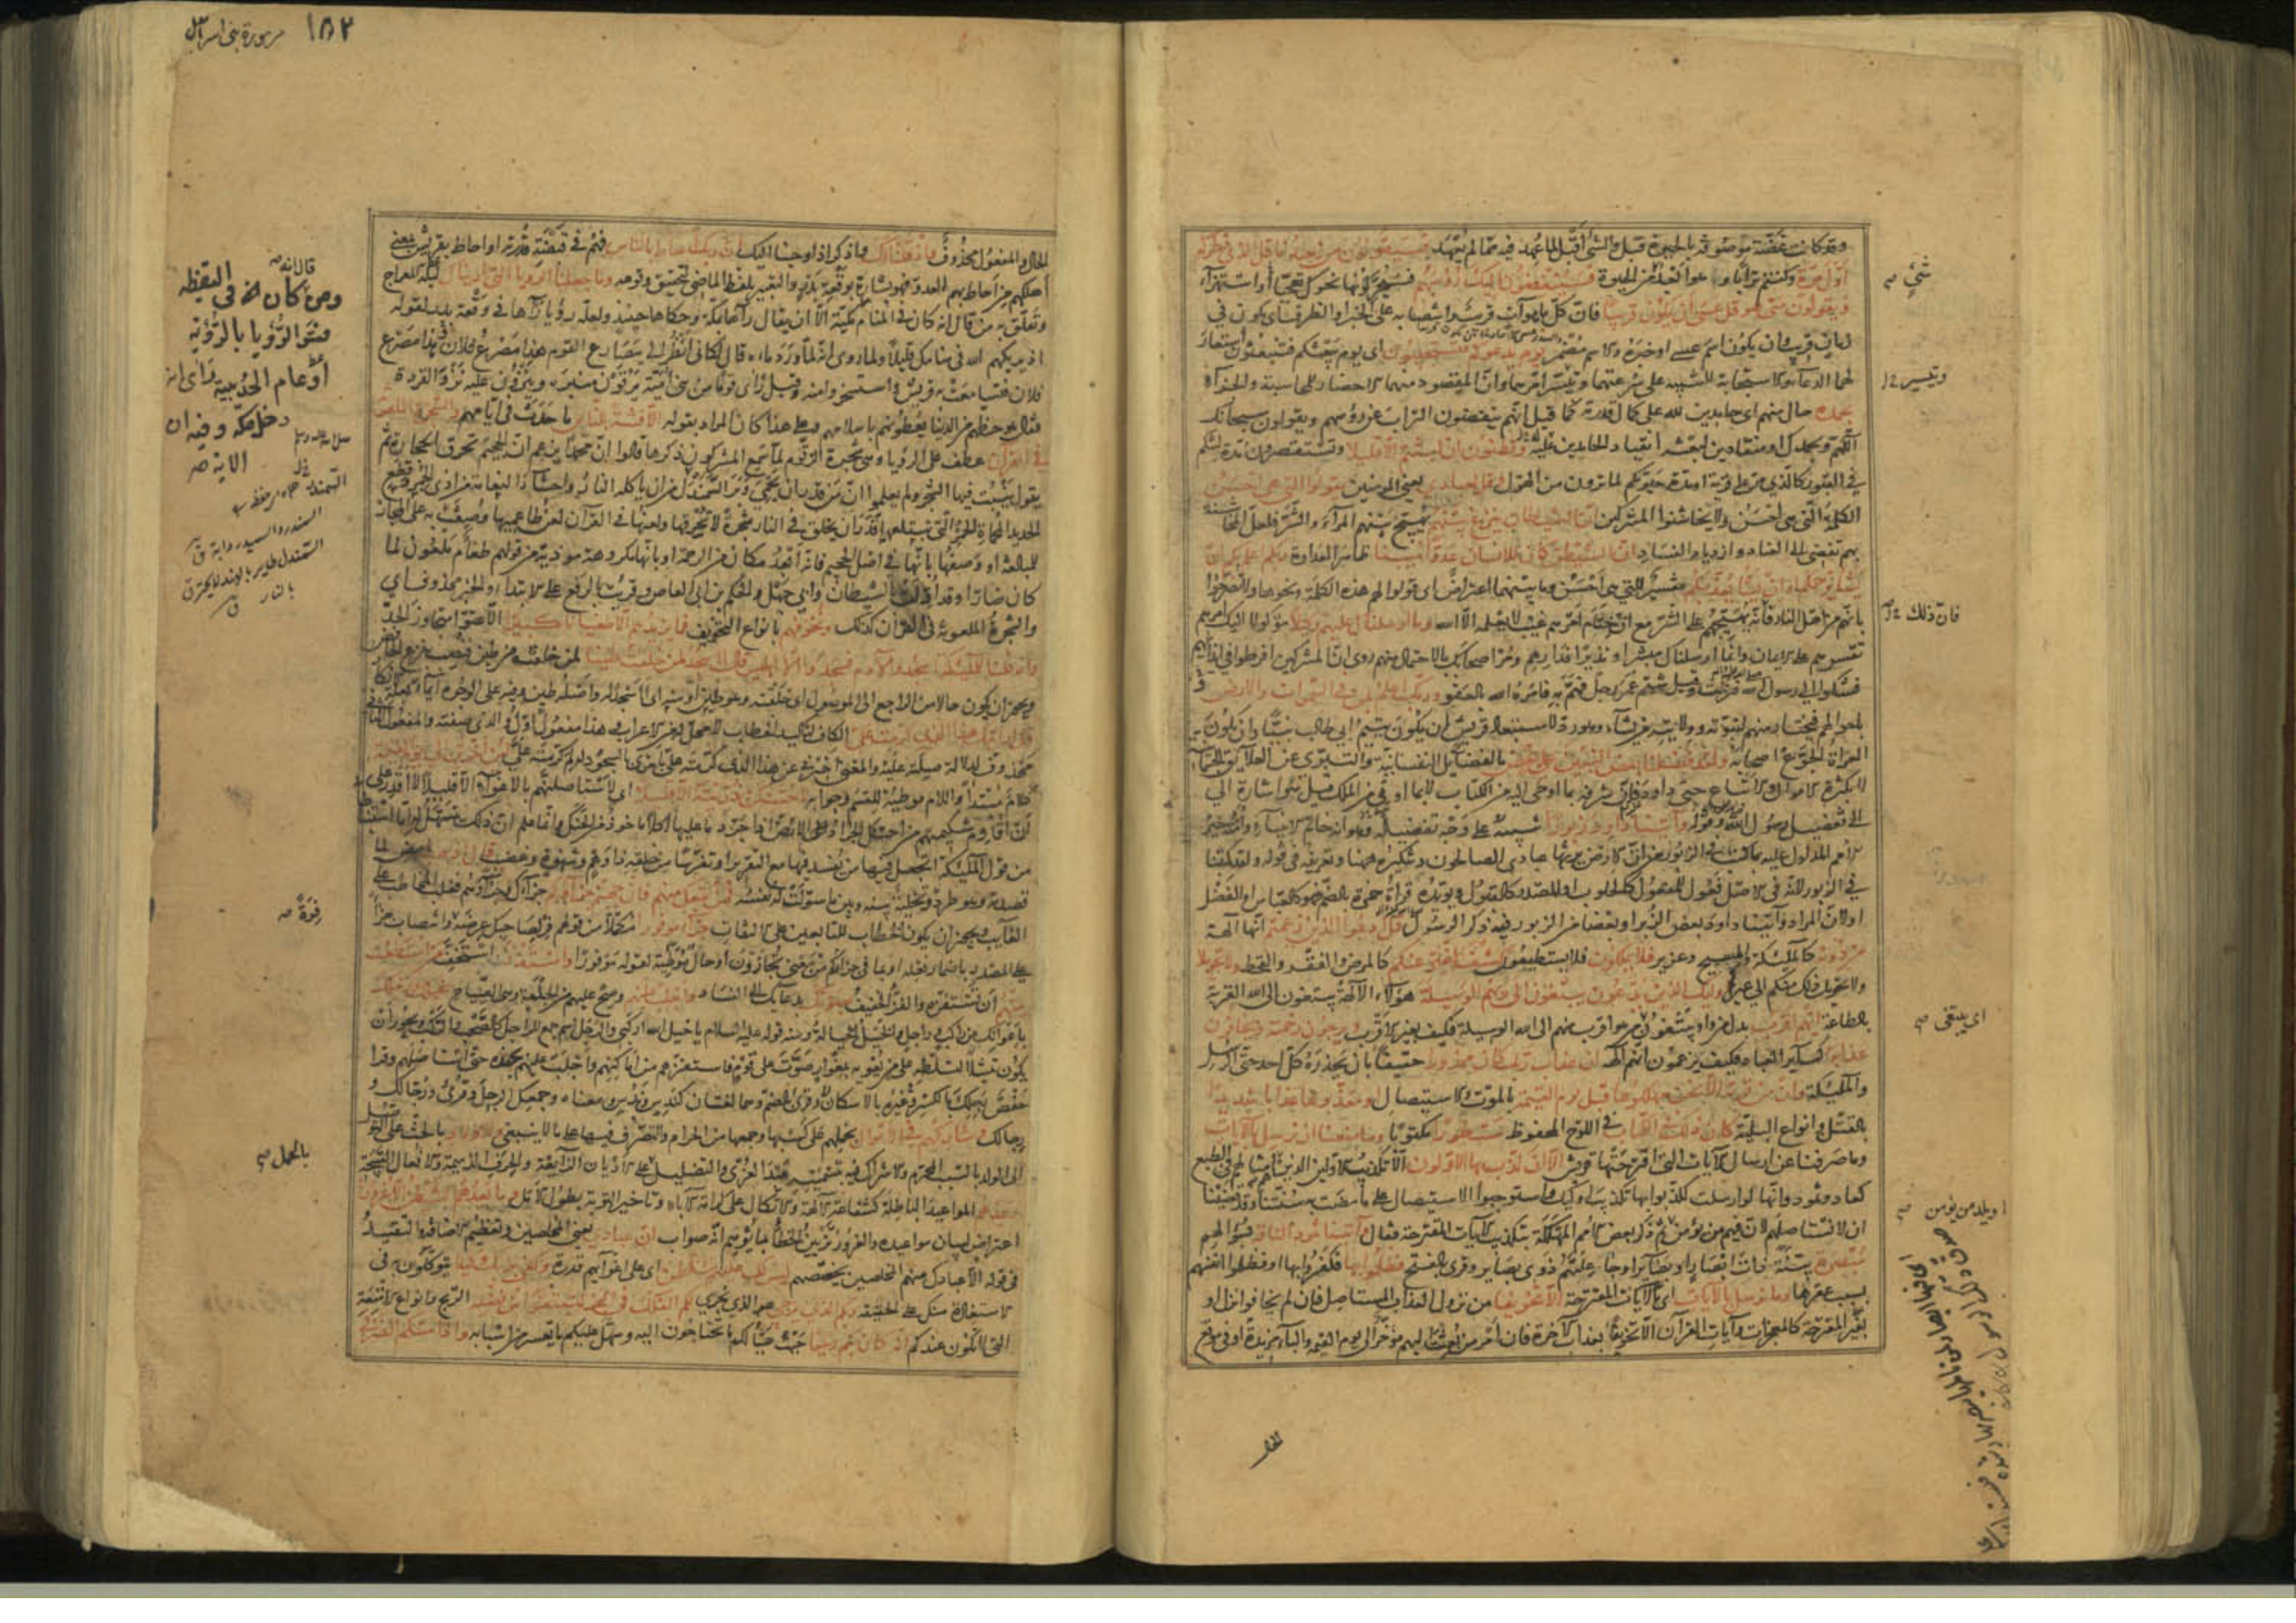 وقد كانت غضّة موصوفة بالحيوة قبل والشئ أقبل لما عهد فيه مما لم يعهد فسيقولون من يعيدنا قل الذي فطركم
أول مرة وكنتم ترابا وما هو ابعد من الحيوة فسينغضون اليك رؤسهم فسيحركونها نحوك تعجبا أو استهزاء
ويقولون متى هو قل عسى ان يكون قريبا فان كل ما هو آت قريب وانتصابه على الخبر او الظرف اي يكون في
زمان قريب وان يكون اسم عسى او خبره والاسم مضمر يوم يدعوكم فتستجيبون اي يوم يبعثكم فتنبعثون استعار
لهما الدعاء والاستجابة للتنبيه على سرعتهما وتيسر امرهما وان المقصود منهما الاحضار للمحاسبة والجزاء
بحمده حال منهم اي حامدين لله على كمال قدرته كما قيل انهم ينفضون التراب عن رؤسهم ويقولون سبحانك
اللهم وبحمدك او منقادين لبعثه انقياد الحامدين عليه وتظنون ان لبثتم الا قليلا وتستقصرون مدة لبثكم
في القبور كالذي مر على قرية او مدة حيوتكم لما ترون من الهول وقل لعبادي يعني المومنين يقولوا التي هي احسن
الكلمة التي هي احسن ولا يخاشنوا المشركين ان الشيطان ينزغ بينهم يهيج بينهم المراء والشر فلعل المخاشنة
بهم تفضي الى العناد وازدياد الفساد ان الشيطان كان للانسان عدوا مبينا ظاهر العداوة ربكم اعلم بكم ان
يشأ يرحمكم او ان يشأ يعذبكم تفسير للتي هي احسن وما بينهما اعتراض اي قولوا لهم هذه الكلمة ونحوها ولا تصرحوا
بانهم من اهل النار فانه يهيجهم على الشر مع ان ختام امرهم غيب لا يعلمه الا الله وما ارسلناك عليهم وكيلا موكولا اليك امرهم
تقسرهم على الايمان وانما ارسلناك مبشرا ونذيرا فدارهم ومر اصحابك بالاحتمال منهم روى ان المشركين افرطوا في ايذائهم
فشكوا الى رسول الله فنزلت وقيل شتم عمر رجل فهم به فامره الله بالعفو وربك اعلم بمن في السموات والارض
باحوالهم فيختار منهم لنبوته وولايته من يشاء وهو رد لاستبعاد قريش ان يكون يتيم ابي طالب نبيا وان يكون
العراة الجوع اصحابه ولقد فضلنا بعض النبيين على بعض بالفضايل النفسانية والتبري عن العلايق الجسمانية
لا بكثرة الاموال والاتباع حتى داود فان شرفه بما اوحى اليه من الكتاب لا بما اوتي من الملك قيل هو اشارة الى
تفضيل رسول الله وقوله وآتينا داود زبورا تنبيه على وجه تفضيله وهو انه خاتم الانبياء وامته خير
الامم المدلول عليه بما كتب في الزبور من ان الارض يرثها عبادي الصالحون وتنكيره ههنا وتعريفه في قوله ولقد كتبنا
في الزبور لانه في الاصل فعول للمفعول كالحلوب او للمصدر كالقبول ويؤيده قراءة حمزة بالضم فهو كالعباس او الفضل
او لان المراد وآتينا داود بعض الزبر او بعضا من الزبور فيه ذكر الرسول قل ادعوا الذين زعمتم انها آلهة
من دونه كالملئكة والمسيح وعزير فلا يملكون فلا يستطيعون كشف الضر عنكم كالمرض والفقر والقحط ولا تحويلا
ولا تحويل ذلك منكم الى غيركم اولئك الذين يدعون يبتغون الى ربهم الوسيلة هؤلاء الآلهة يبتغون الى الله القربة
بالطاعة ايهم اقرب بدل من واو يبتغون من هو اقرب منهم الى الله الوسيلة فكيف بغير الاقرب ويرجون رحمته ويخافون
عذابه كسائر العباد فكيف يزعمون انهم آلهة ان عذاب ربك كان محذورا حقيقا بان يحذره كل احد حتى الرسل
والملئكة وان من قرية الا نحن مهلكوها قبل يوم القيمة بالموت والاستيصال او معذبوها عذابا شديدا
بالقتل وانواع البلية كان ذلك في الكتاب في اللوح المحفوظ مسطورا مكتوبا وما منعنا ان نرسل بالآيات
وما صرفنا عن ارسال الآيات التي اقترحتها قريش الا ان كذب بها الاولون الا تكذيب الاولين الذين هم امثالهم في الطبع
كعاد وثمود وانها لو ارسلت لكذبوا بها تكذيب اولئك واستوجبوا الاستيصال على ما مضت به سنتنا وقد قضينا
ان لا نستاصلهم لان فيهم من يؤمن ثم ذكر بعض الامم المهلكة بتكذيب الآيات المقترحة فقال وآتينا ثمود الناقة بسؤالهم
مبصرة بينة ذات ابصار او بصاير او جاعلتهم ذوي بصاير وقرئ بالفتح فظلموا بها فكفروا بها او فظلموا انفسهم
بسبب عقرها وما نرسل بالآيات اي بالآيات المقترحة الا تخويفا من نزول العذاب المستاصل فان لم يخافوا نزل او
بغير المقترحة كالمعجزات وآيات القرآن الا تخويفا بعذاب الآخرة فان امر من بعثت اليهم مؤخر الى يوم القيمة والباء مزيدة او في موقع
شئ صح
وتيسير
فان ذلك
اي يبتغي صح
او يلد من يؤمن صح
الحال
١٥٢ سورة بني اسرائيل
الحال والمفعول محذوف واذ قلنا لك واذكر اذ اوحينا اليك ان ربك احاط بالناس فهم في قبضة قدرته او احاط بقريش بمعنى
اهلكهم من احاط بهم العدو فهو بشارة بوقعة بدر والتعبير بلفظ الماضي لتحقيق وقوعه وما جعلنا الرؤيا التي اريناك ليلة المعراج
وتعلق به من قال انه كان في المنام مكية الا ان يقال رآها بمكة وحكاها حينئذ ولعله رؤيا رآها في وقعة بدر لقوله
اذ يريكهم الله في منامك قليلا ولما روي انه لما ورد ماءه قال لكاني انظر الى مصارع القوم هذا مصرع فلان وهذا مصرع
فلان فتسامعت به قريش واستسخروا منه وقيل رأى قوما من بني امية يرقون منبره وينزون عليه نزو القردة
فقال هو حظهم من الدنيا يعطونه باسلامهم وعلى هذا كان المراد بقوله الا فتنة للناس ما حدث في ايامهم والشجرة الملعونة
في القرآن عطف على الرؤيا وهي شجرة الزقوم لما سمع المشركون ذكرها قالوا ان محمدا يزعم ان الجحيم تحرق الحجارة ثم
يقول ينبت فيها الشجر ولم يعلموا ان من قدر ان يحمي وبر السمندل من ان ياكله النار واحشاء النعامة من اذى الجمر وقطع
الحديد المحماة الحمر التي تبتلعها قدر ان يخلق في النار شجرة لا تحرقها ولعنها في القرآن لعن طاعميها وصفت به على المجاز
للمبالغة او وصفها بانها في اصل الجحيم فانه ابعد مكان من الرحمة او بانها مكروهة موذية من قولهم طعام ملعون لما
كان ضارا وقد اولت بالشيطان وابي جهل والحكم بن ابي العاص وقرئت بالرفع على الابتداء والخبر محذوف اي
والشجرة الملعونة في القرآن كذلك ونخوفهم بانواع التخويف فما يزيدهم الا طغيانا كبيرا الا عتوا متجاوز الحد
واذ قلنا للملئكة اسجدوا لآدم فسجدوا الا ابليس قال أأسجد لمن خلقت طينا لمن خلقته من طين فنصب بنزع الخافض
ويجوز ان يكون حالا من الراجع الى الموصول اي خلقته وهو طين او منه اي أأسجد له واصله طين وفيه على الوجوه ايماء بعلة الانكار
قال ارأيتك هذا الذي كرمت علي الكاف لتاكيد الخطاب لا محل له من الاعراب وهذا مفعول اول والذي صفته والمفعول الثاني
محذوف لدلالة صلته عليه والمعنى اخبرني عن هذا الذي كرمته علي بامري بالسجود له لم كرمته علي لئن اخرتن الى يوم القيمة
كلام مبتدأ واللام موطئة للقسم وجوابه لاحتنكن ذريته الا قليلا اي لاستاصلنهم بالاغواء الا قليلا لا اقدر على
ان اقاوم شكيمتهم من احتنك الجراد الارض اذا جرد ما عليها اكلا ماخوذ من الحنك وانما علم ان ذلك يتسهل له اما استنباطا
من قول الملئكة اتجعل فيها من يفسد فيها مع التقرير او تفرسا من خلقه ذا وهم وشهوة وغضب قال اذهب امض لما
قصدته وهو طرد وتخلية بينه وبين ما سولت له نفسه فمن تبعك منهم فان جهنم جزاؤكم جزاؤك وجزاؤهم فغلب المخاطب على
الغايب ويجوز ان يكون الخطاب للتابعين على الالتفات جزاء موفورا مكملا من قولهم فر لصاحبك عرضه وانتصاب جزاء
على المصدر باضمار فعله او بما في جزاؤكم من معنى تجازون او حال موطئة لقوله موفورا واستفزز واستخف من استطعت
منهم ان تستفزه والفز الخفيف بصوتك بدعائك الى الفساد واجلب عليهم وصح عليهم من الجلبة وهي الصياح بخيلك ورجلك
باعوانك من راكب وراجل والخيل الخيالة ومنه قوله عليه السلام يا خيل الله اركبي والرجل اسم جمع للراجل كالصحب والركب ويجوز ان
يكون تمثيلا لتسلطه على من يغويه بمغوار صوت على قوم فاستفزهم من اماكنهم واجلب عليهم بجنده حتى استاصلهم وقرأ
حفص ورجلك بالكسر وغيره بالاسكان وقرئ بالضم وهما لغتان كندس وندس ومعناه وجمعك الرجل وقرئ ورجالك و
رجالك وشاركهم في الاموال بحملهم على كسبها وجمعها من الحرام والتصرف فيها على ما لا ينبغي والاولاد بالحث على التوصل
الى الولد بالسبب المحرم والاشراك فيه بتسميته عبد العزى والتضليل على الاديان الزايغة والحرف الذميمة والافعال القبيحة
وعدهم المواعيد الباطلة كشفاعة الآلهة والاتكال على كرامة الآباء وتاخير التوبة بطول الامل وما يعدهم الشيطان الا غرورا
اعتراض لبيان مواعيده والغرور تزيين الخطأ بما يوهم انه صواب ان عبادي يعني المخلصين وتعظيم الاضافة والتقييد
في قوله الا عبادك منهم المخلصين يخصصهم ليس لك عليهم سلطان اي على اغوائهم قدرة وكفى بربك وكيلا يتوكلون به في
الاستعاذة منك على الحقيقة ربكم الذي يزجي هو الذي يجري لكم الفلك في البحر لتبتغوا من فضله الريح وانواع الامتعة
التي لا تكون عندكم انه كان بكم رحيما حيث هيأ لكم ما تحتاجون اليه وسهل عليكم ما يعسر من اسبابه واذا مسكم الضر
قال انه
ومن كان في اليقظه
فسر الرؤيا بالرؤية
أو عام الحديبية رأى انه
دخل مكة وفيه ان
الاية
بالنار
بالحمل صح